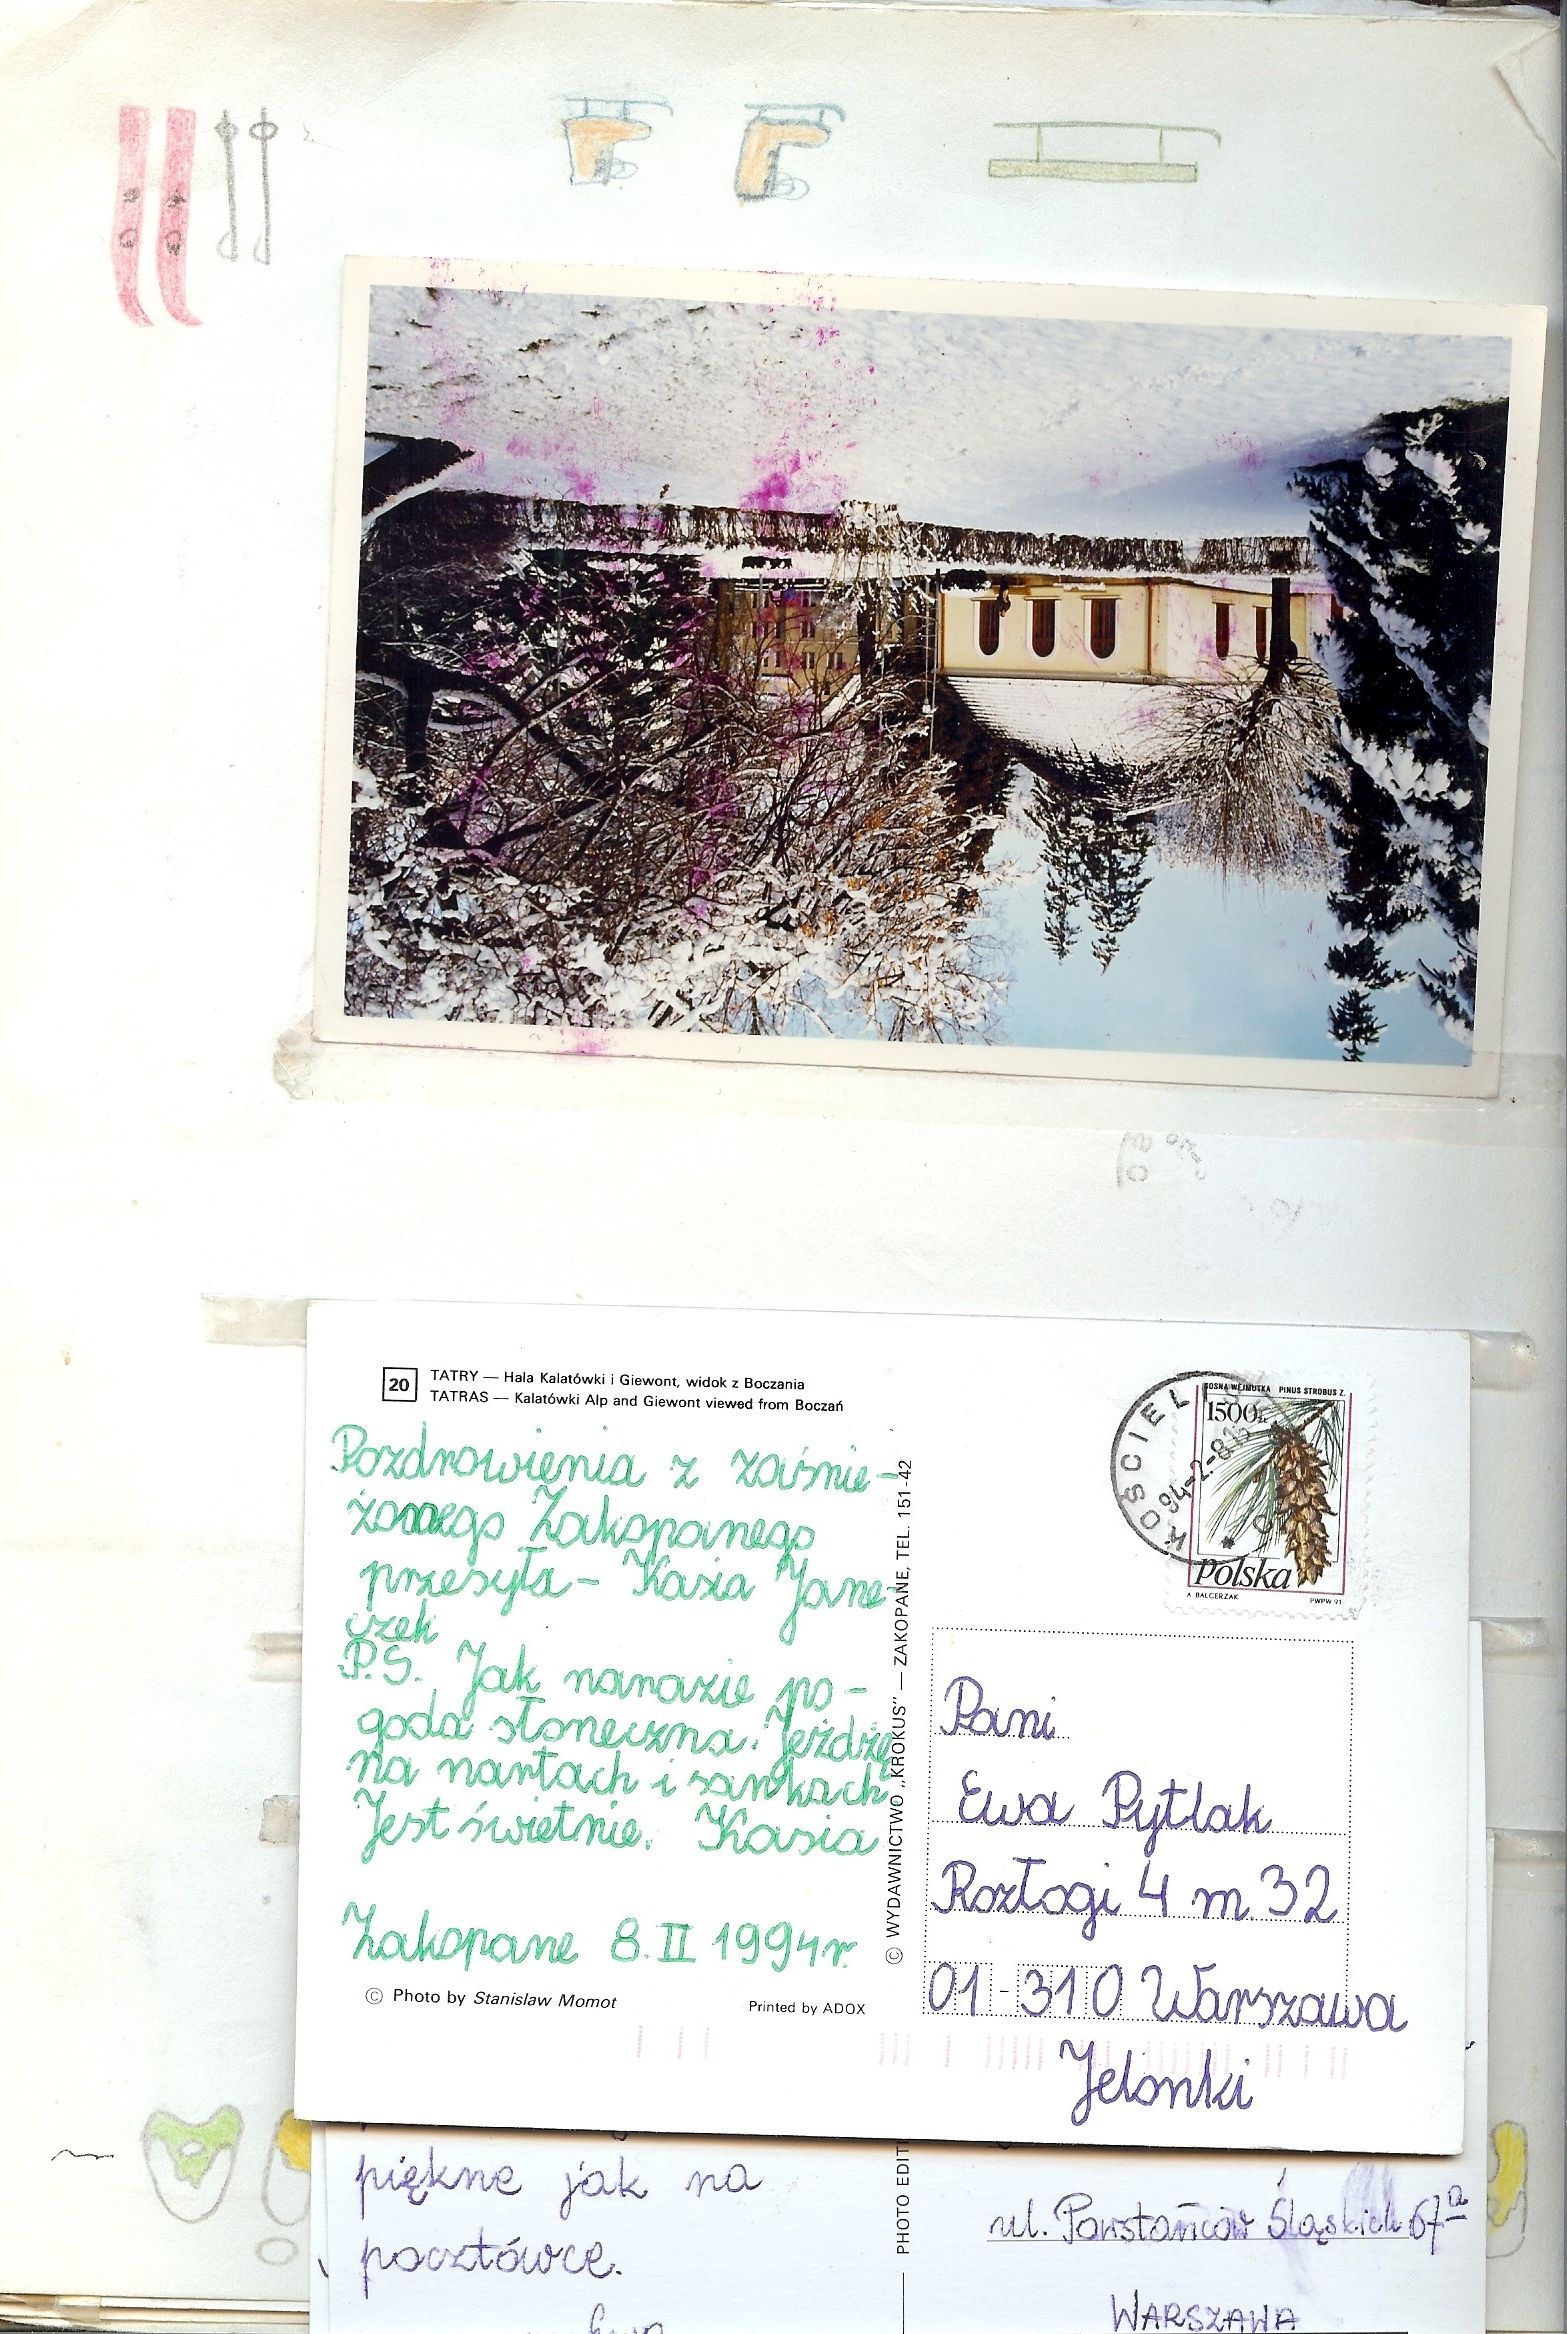 20
TATRY — Hala Kalatówki i Giewont, widok z Boczania
TATRAS — Kalatówki Alp and Giewont viewed from Boczań
Pozdrowienia z zaśnie-
żonego Zakopanego
przesyła - Kasia Jane-
czek
P.S. Jak narazie po-
goda słoneczna. Jeżdżę
na nartach i sankach
Jest świetnie. Kasia
Zakopane 8.II 1994r.
© Photo by Stanislaw Momot
Printed by ADOX
© WYDAWNICTWO „KROKUS" — ZAKOPANE, TEL. 151-42
KOŚCIELI
94-2-8
SOSNA WEJMUTKA PINUS STROBUS Z.
1500zł
Polska
A. BALCERZAK PWPW 91
Pani
Ewa Pytlak
Rozłogi 4 m. 32
01-310 Warszawa
Jelonki
piękne jak na
pocztówce.
PHOTO EDIT
ul. Powstańców Śląskich 67a
WARSZAWA